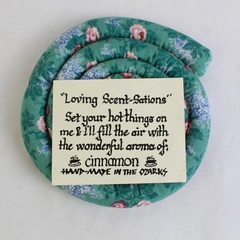 "Loving Scent-Sations"
Set your hot things on
me & I'll fill the air with
the wonderful aroma of;
cinnamon
HAND-MADE IN THE OZARKS